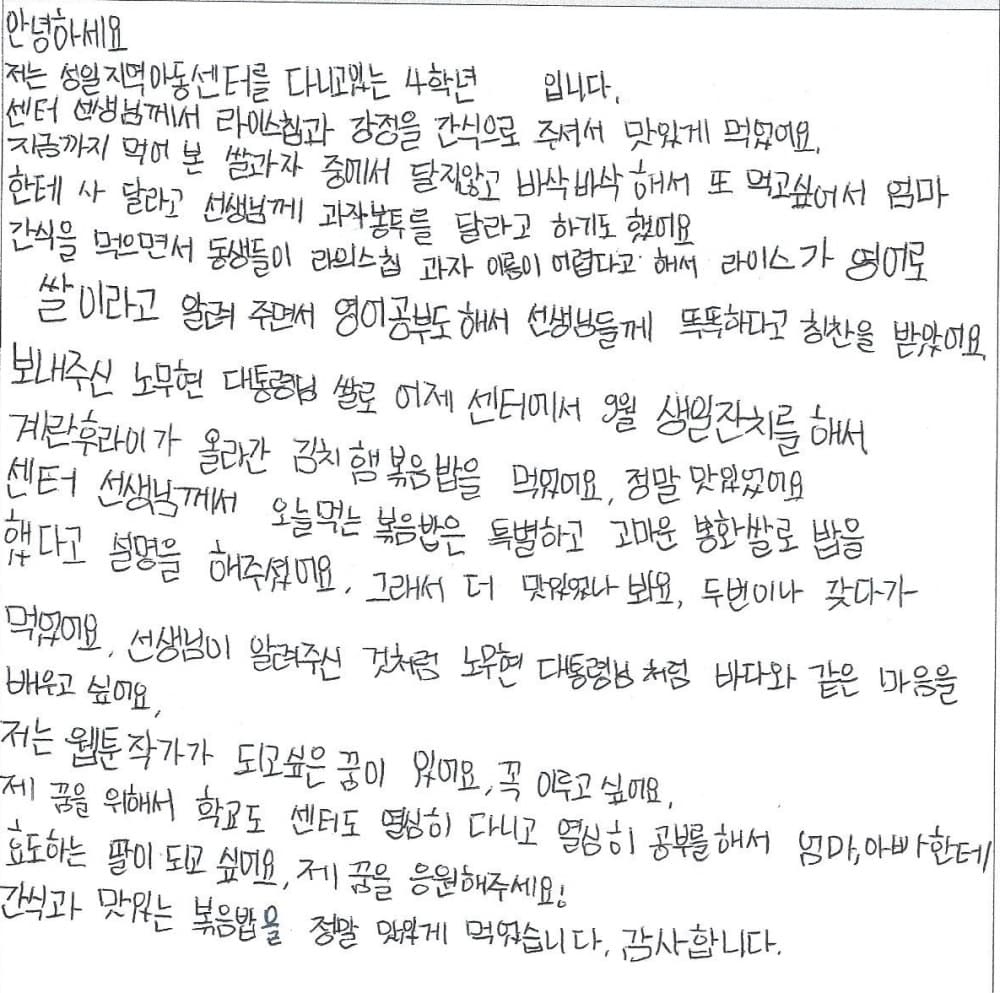 안녕하세요
저는 성일지역아동센터를 다니고있는 4학년 입니다.
센터 선생님께서 라이스칩과 강정을 간식으로 주셔서 맛있게 먹었어요.
지금까지 먹어 본 쌀과자 중에서 달지않고 바삭바삭해서 또 먹고싶어서 엄마
한테 사 달라고 선생님께 과자봉투를 달라고 하기도 했어요
간식을 먹으면서 동생들이 라의스칩 과자 이름이 어렵다고 해서 라이스가 영어로
쌀이라고 알려 주면서 영어공부도해서 선생님들께 똑똑하다고 칭찬을 받았어요
보내주신 노무현 대통령님 쌀로 어제 센터에서 9월 생일잔치를 해서
계란후라이가 올라간 김치햄볶음밥을 먹었어요, 정말 맛있었어요
센터 선생님께서 오늘먹는 볶음밥은 특별하고 고마운 봉화쌀로 밥을
했다고 설명을 해주셨어요. 그래서 더 맛있었나 봐요, 두번이나 갖다가
먹었어요, 선생님이 알려주신 것처럼 노무현 대통령님처럼 바다와 같은 마음을
배우고 싶어요,
저는 웹툰작가가 되고싶은 꿈이 있어요, 꼭 이루고 싶어요,
제 꿈을 위해서 학교도 센터도 열심히 다니고 열심히 공부를해서 엄마,아빠한테
효도하는 딸이 되고 싶어요, 제 꿈을 응원해주세요!
간식과 맛있는 볶음밥을 정말 맛있게 먹었습니다, 감사합니다.